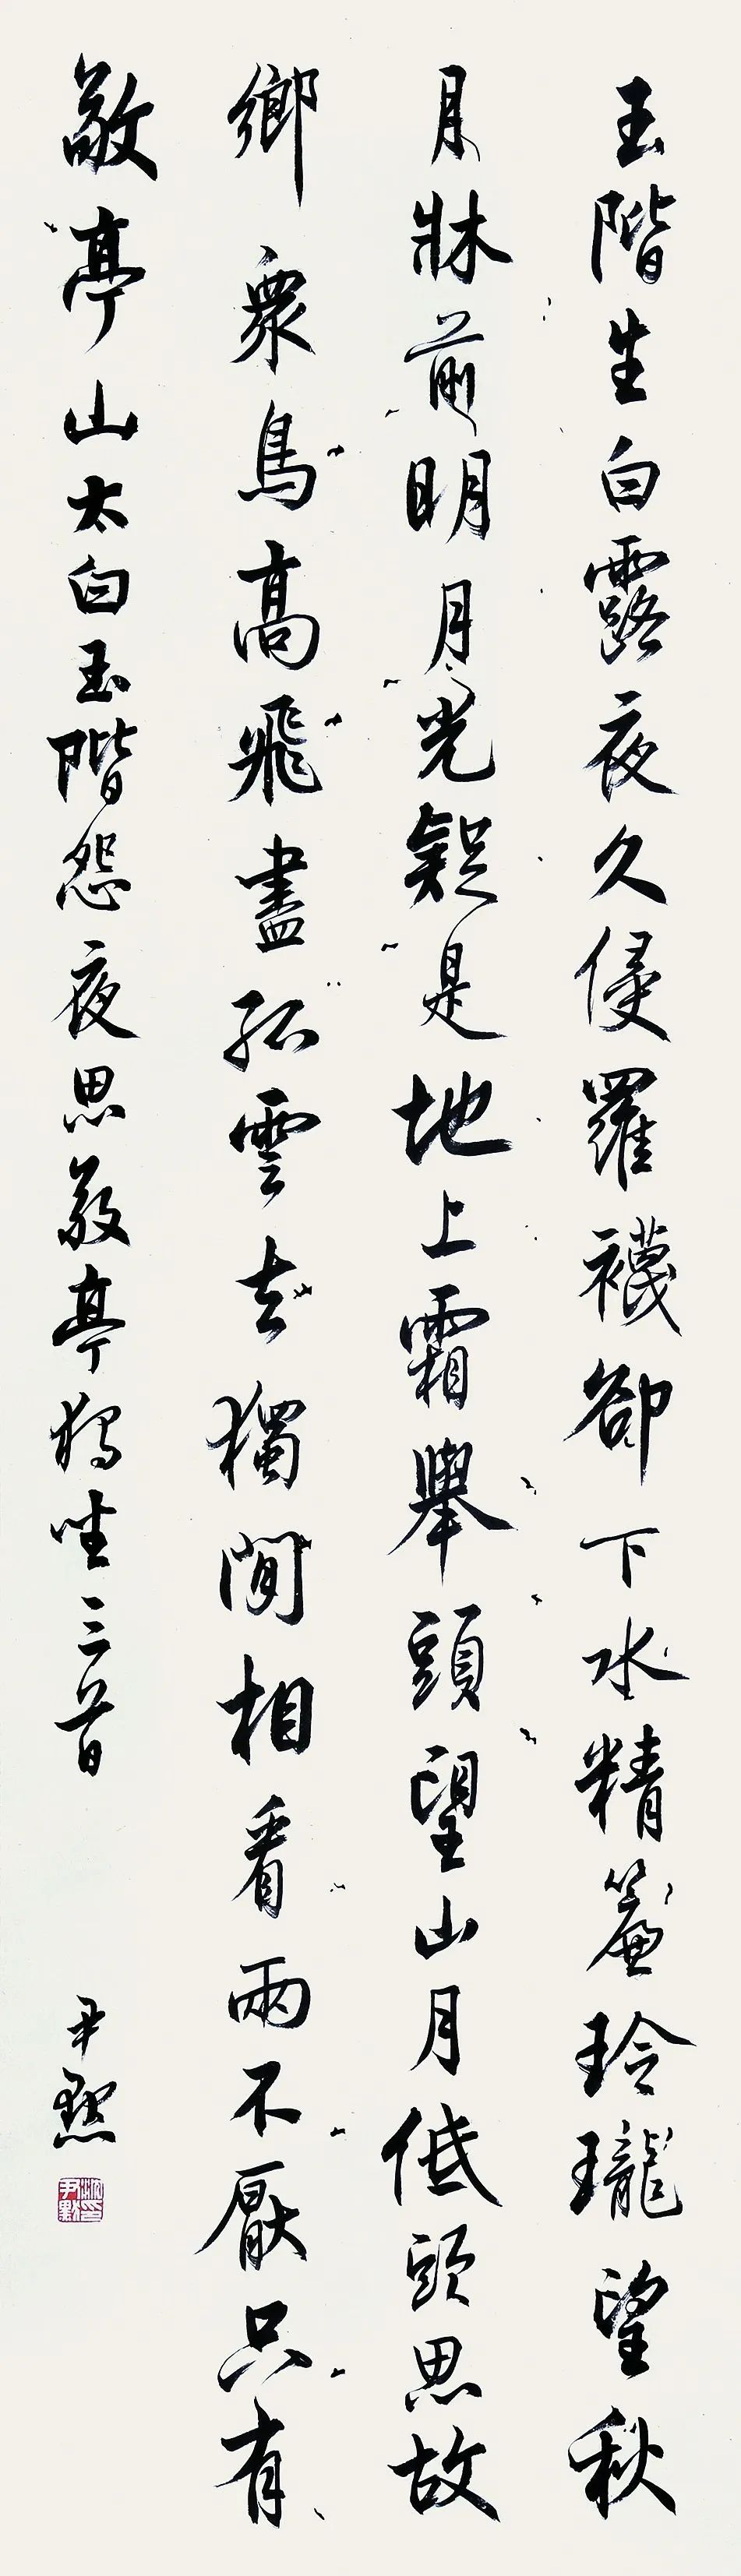 玉階生白露夜久侵羅襪卻下水精簾玲瓏望秋
月牀前明月光疑是地上霜舉頭望山月低頭思故
鄉眾鳥高飛盡孤雲去獨閒相看兩不厭只有
敬亭山太白玉階怨夜思敬亭獨坐三首
尹默
沈尹默印